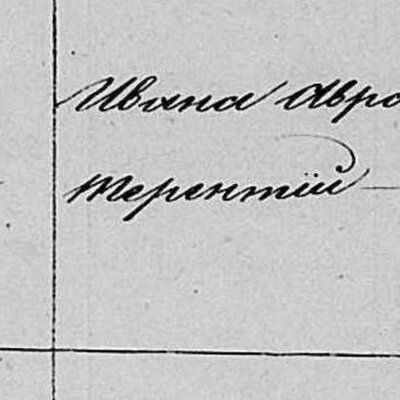 Ивана Авра
Терентій